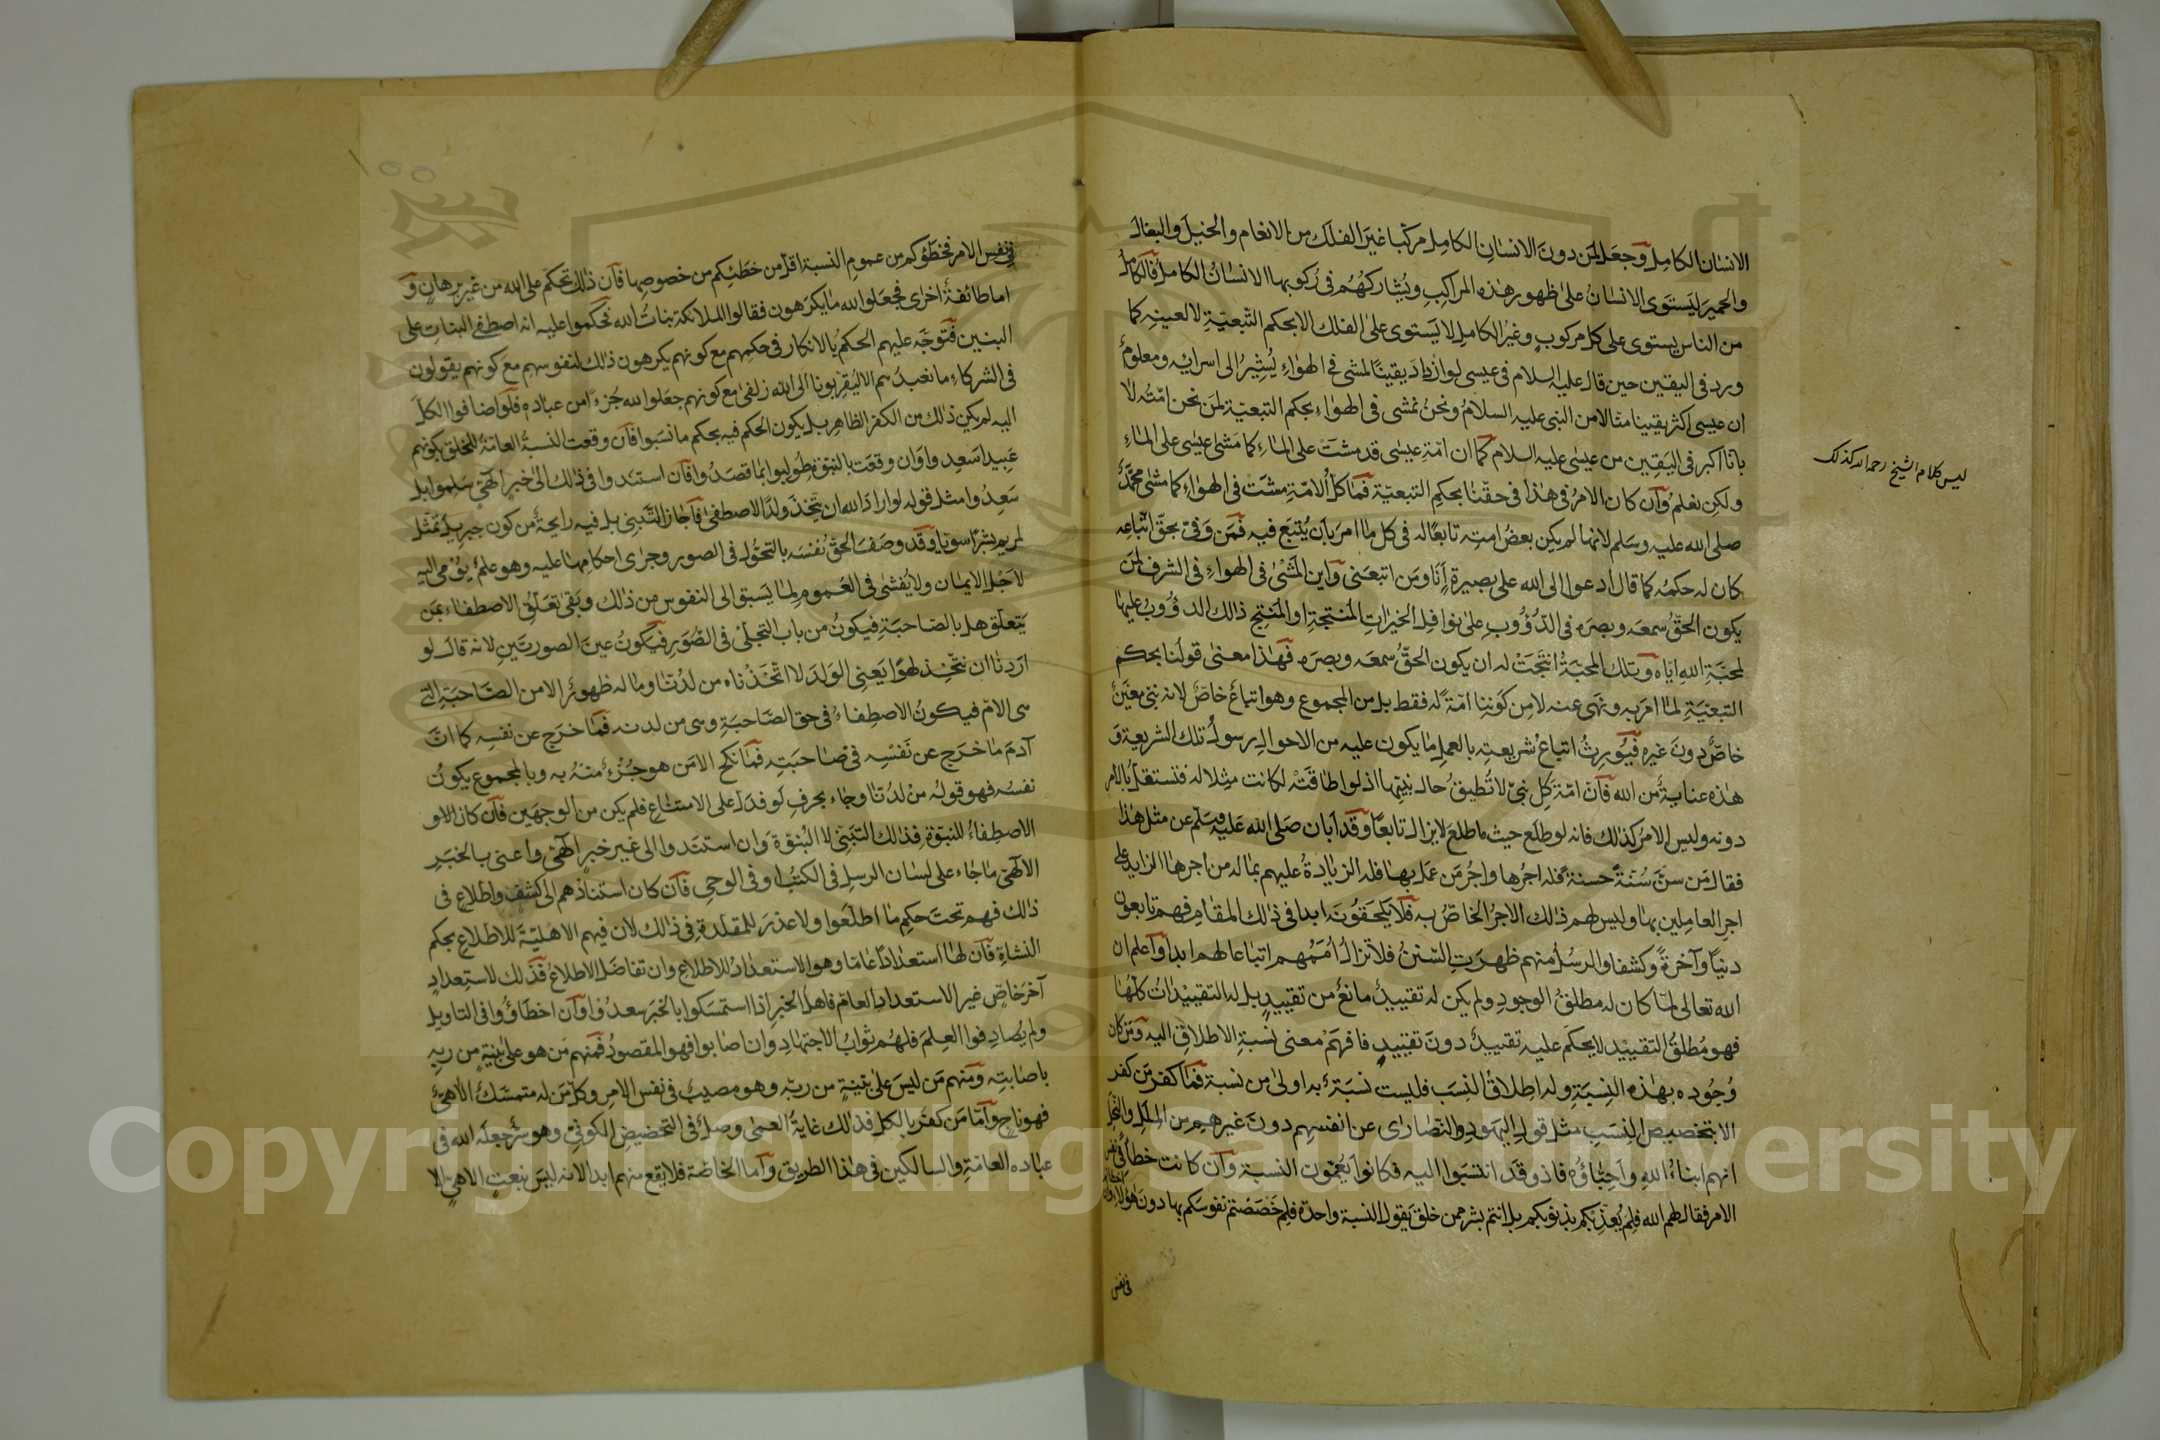 الانسان الكامل وجعل لمن دون الانسان الكامل مركبا غير الفلك من الانعام والخيل والبغال
والحمير ليستوى الانسان على ظهور هذه المراكب ويشاركهم فى ركوبها الانسان الكامل فالكامل
من الناس يستوى على كل مركوب وغير الكامل لا يستوى على الفلك الا بحكم التبعية لا لعينه كما
ورد فى اليقين حين قال عليه السلام فى عيسى لو ازداد يقينا لمشى فى الهواء يشير الى اسرائه ومعلوم
ان عيسى اكثر يقينا منا لا من النبى عليه السلام ونحن نمشى فى الهواء بحكم التبعية لمن نحن امته لا
بانا اكبر فى اليقين من عيسى عليه السلام كما ان امة عيسى قد مشت على الماء كما مشى عيسى على الماء
ولكن نعلم وان كان الامر فى هذا فى حقنا بحكم التبعية فما كل الامة مشت فى الهواء كما مشى محمد
صلى الله عليه وسلم لانها لم يكن بعض امته تابعا له فى كل ما امر بان يتبع فيه فمن وفى بحق اتباعه
كان له حكمه كما قال ادعوا الى الله على بصيرة انا ومن اتبعنى واين المشى فى الهواء فى الشرف لمن
يكون الحق سمعه وبصره فى الدؤوب على نوافل الخيرات المنتجة او المنتج ذلك الدؤوب عليها
لمحبة الله اياه وتلك المحبة انتجت له ان يكون الحق سمعه وبصره فهذا معنى قولنا بحكم
التبعية لما امر به ونهى عنه لا من كوننا امة له فقط بل من المجموع وهو اتباع خاص لانه نبى معين
خاص دون غيره فيورث اتباع شريعته بالعمل ما يكون عليه من الاحوال رسول تلك الشريعة و
هذه عناية من الله فان امة كل نبى لا تطيق حال نبيها اذ لو اطاقته لكانت مثلا له فتستقل بالامر
دونه وليس الامر كذلك فانه لو طلع حيث ما طلع لا يزال تابعا وقد ابان صلى الله عليه وسلم عن مثل هذا
فقال من سن سنة حسنة فله اجرها واجر من عمل بها فله الزيادة عليهم بما له من اجرها الزايد على
اجر العاملين بها وليس لهم ذلك الاجر الخاص به فلا يلحقونه ابدا فى ذلك المقام فهم تابعون
دنيا وآخرة وكشفا والرسل منهم ظهرت السنن فلا تزال اممهم اتباعا لهم ابدا واعلم ان
الله تعالى لما كان له مطلق الوجود ولم يكن له تقييد مانع من تقييد بل له التقييدات كلها
فهو مطلق التقييد لا يحكم عليه تقييد دون تقييد فافهم معنى نسبة الاطلاق اليه ومن كان
وجوده بهذه النسبة وله اطلاق النسب فليست نسبة به اولى من نسبة فما كفر من كفر
الا بتخصيص النسب مثل قول اليهود والنصارى عن انفسهم دون غيرهم من الملل والنحل
انهم ابناء الله واحباؤه فاذ وقد انتسبوا اليه فكانوا يعمون النسبة وان كانت خطأ فى نفس
الامر فقال لهم الله فلم يعذبكم بذنوبكم بل انتم بشر ممن خلق يقول النسبة واحدة فلم خصصتم نفوسكم بها دون هؤلاء وان
فى نفس
ليس كلام الشيخ رحمه الله كذلك
فى نفس الامر فخطؤكم من عموم النسبة اقل من خطئكم من خصوصها فان ذلك تحكم على الله من غير برهان و
اما طائفة اخرى فجعلوا لله ما يكرهون فقالوا الملائكة بنات الله فحكموا عليه انه اصطفى البنات على
البنين فتوجه عليهم الحكم بالانكار فى حكمهم مع كونهم يكرهون ذلك لنفوسهم مع كونهم يقولون
فى الشركاء ما نعبدهم الا ليقربونا الى الله زلفى مع كونهم جعلوا لله جزءا من عباده فلو اضافوا الكل
اليه لم يكن ذلك من الكفر الظاهر بل يكون الحكم فيه بحكم ما نسبوا فان وقعت النسبة العامة للخلق بكونهم
عبيدا سعدوا وان وقعت بالبنوة طولبوا بما قصدوا فان استندوا فى ذلك الى خبر الهى سلموا بل
سعدوا مثل قوله لو اراد الله ان يتخذ ولدا لاصطفى فاجاز التبنى بل فيه رايحة من كون جبريل تمثل
لمريم بشرا سويا وقد وصف الحق نفسه بالتحول فى الصور وجرى احكامها عليه وهو علم يومى اليه
لاجل الايمان ولا يفشى فى العموم لما يسبق الى النفوس من ذلك وبقى تعلق الاصطفاء بمن
يتعلق هل بالصاحبة فيكون من باب التجلى فى الصور فيكون عين الصورتين لانه قال لو
اردنا ان نتخذ لهوا يعنى الولد لا اتخذناه من لدنا وما له ظهور الا من الصاحبة التى
هى الام فيكون الاصطفاء فى حق الصاحبة وهى من لدنه فما خرج عن نفسه كما ان
آدم ما خرج عن نفسه فى صاحبته فما نكح الا من هو جزء منه به وبالمجموع يكون
نفسه فهو قوله من لدنا وجاء بحرف لو فدل على الامتناع فلم يكن من الوجهين فان كان الاو
الاصطفاء للنبوة فذلك التبنى لا البنوة وان استندوا الى غير خبر الهى واعنى بالخبر
الالهى ما جاء على لسان الرسل فى الكتب او فى الوحى فان كان استنادهم الى كشف واطلاع فى
ذلك فهم تحت حكم ما اطلعوا ولا عذر للمقلدة فى ذلك لان فيهم الاهلية للاطلاع بحكم
النشاة فان لها استعدادا عاما وهو الاستعداد للاطلاع وان تفاضل الاطلاع فذلك لاستعداد
آخر خاص غير الاستعداد العام فاهل الخبر اذا استمسكوا بالخبر سعدوا وان اخطاوا فى التاويل
ولم يصادفوا العلم فلهم ثواب الاجتهاد وان صابوا فهو المقصود فمنهم من هو على بينة من ربه
باصابته ومنهم من ليس على بينة من ربه وهو مصيب فى نفس الامر وكل من له متمسك الهى
فهو ناج واما من كفر بالكل فذلك غاية العمى وصل فى التحضيض الكونى وهو سر جعله الله فى
عباده العامة والسالكين فى هذا الطريق واما الخاصة فلا يقع منهم ابدا لانه ليس بنعت الاهى الا
Copyright © King Saud University